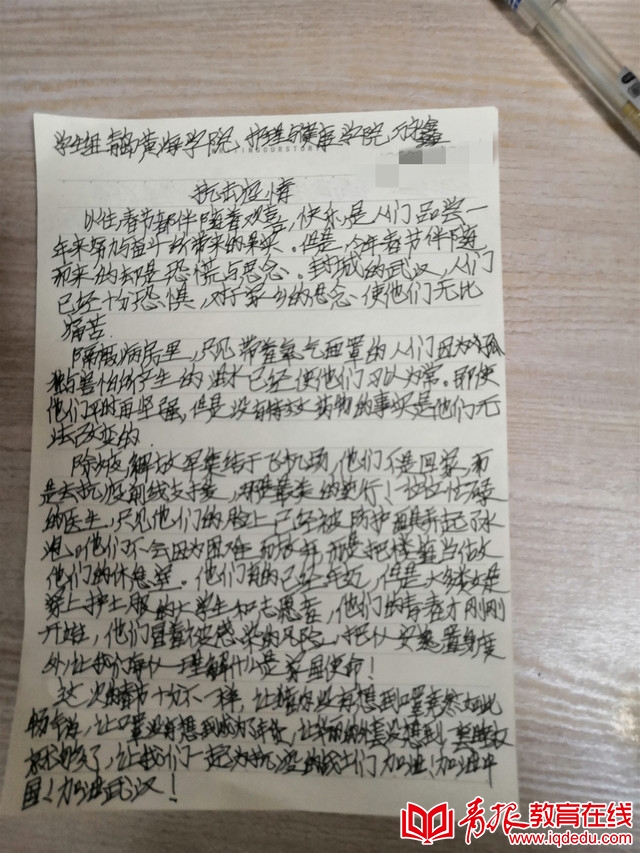 学生组 青岛黄海学院,护理与健康学院,
抗击疫情
以往,春节都伴随着欢喜,快乐,是人们品尝一
年来努力与奋斗所带来的果实。但是,今年春节伴随
而来的却是恐慌与思念。封城的武汉,人们
已经十分恐惧,对于家乡的思念使他们无比
痛苦.
隔离病房里,只见带着氧气面罩的人们因为孤
独与害怕所产生的泪水已经使他们习以为常。即使
他们再坚强,但是没有特效药物的事实是他们无
法改变的.
除夕夜,解放军集结于飞机场,他们不是回家,而
是去抗疫前线支援,那是最美的逆行!忙碌
的医生,只见他们的脸上已经被防护面具起了水
泡。他们不会因为困难而放弃,而是把楼道当做
他们的休息室。他们有的已经年迈,但是大多数是
穿上护士服的大学生和志愿者,他们的青春才刚刚
开始,他们冒着被感染的风险,把安危置身度
外,让我们每一理解什么是家国使命!
这次的春节十分不一样,让谁都没有想到口罩竟然如此
畅销,让口罩没有想到成为年货,让没想到一套睡衣
就够了,让我们一起为抗疫的战士们加油!加油中
国!加油武汉!
青报教育在线
www.iqdedu.com